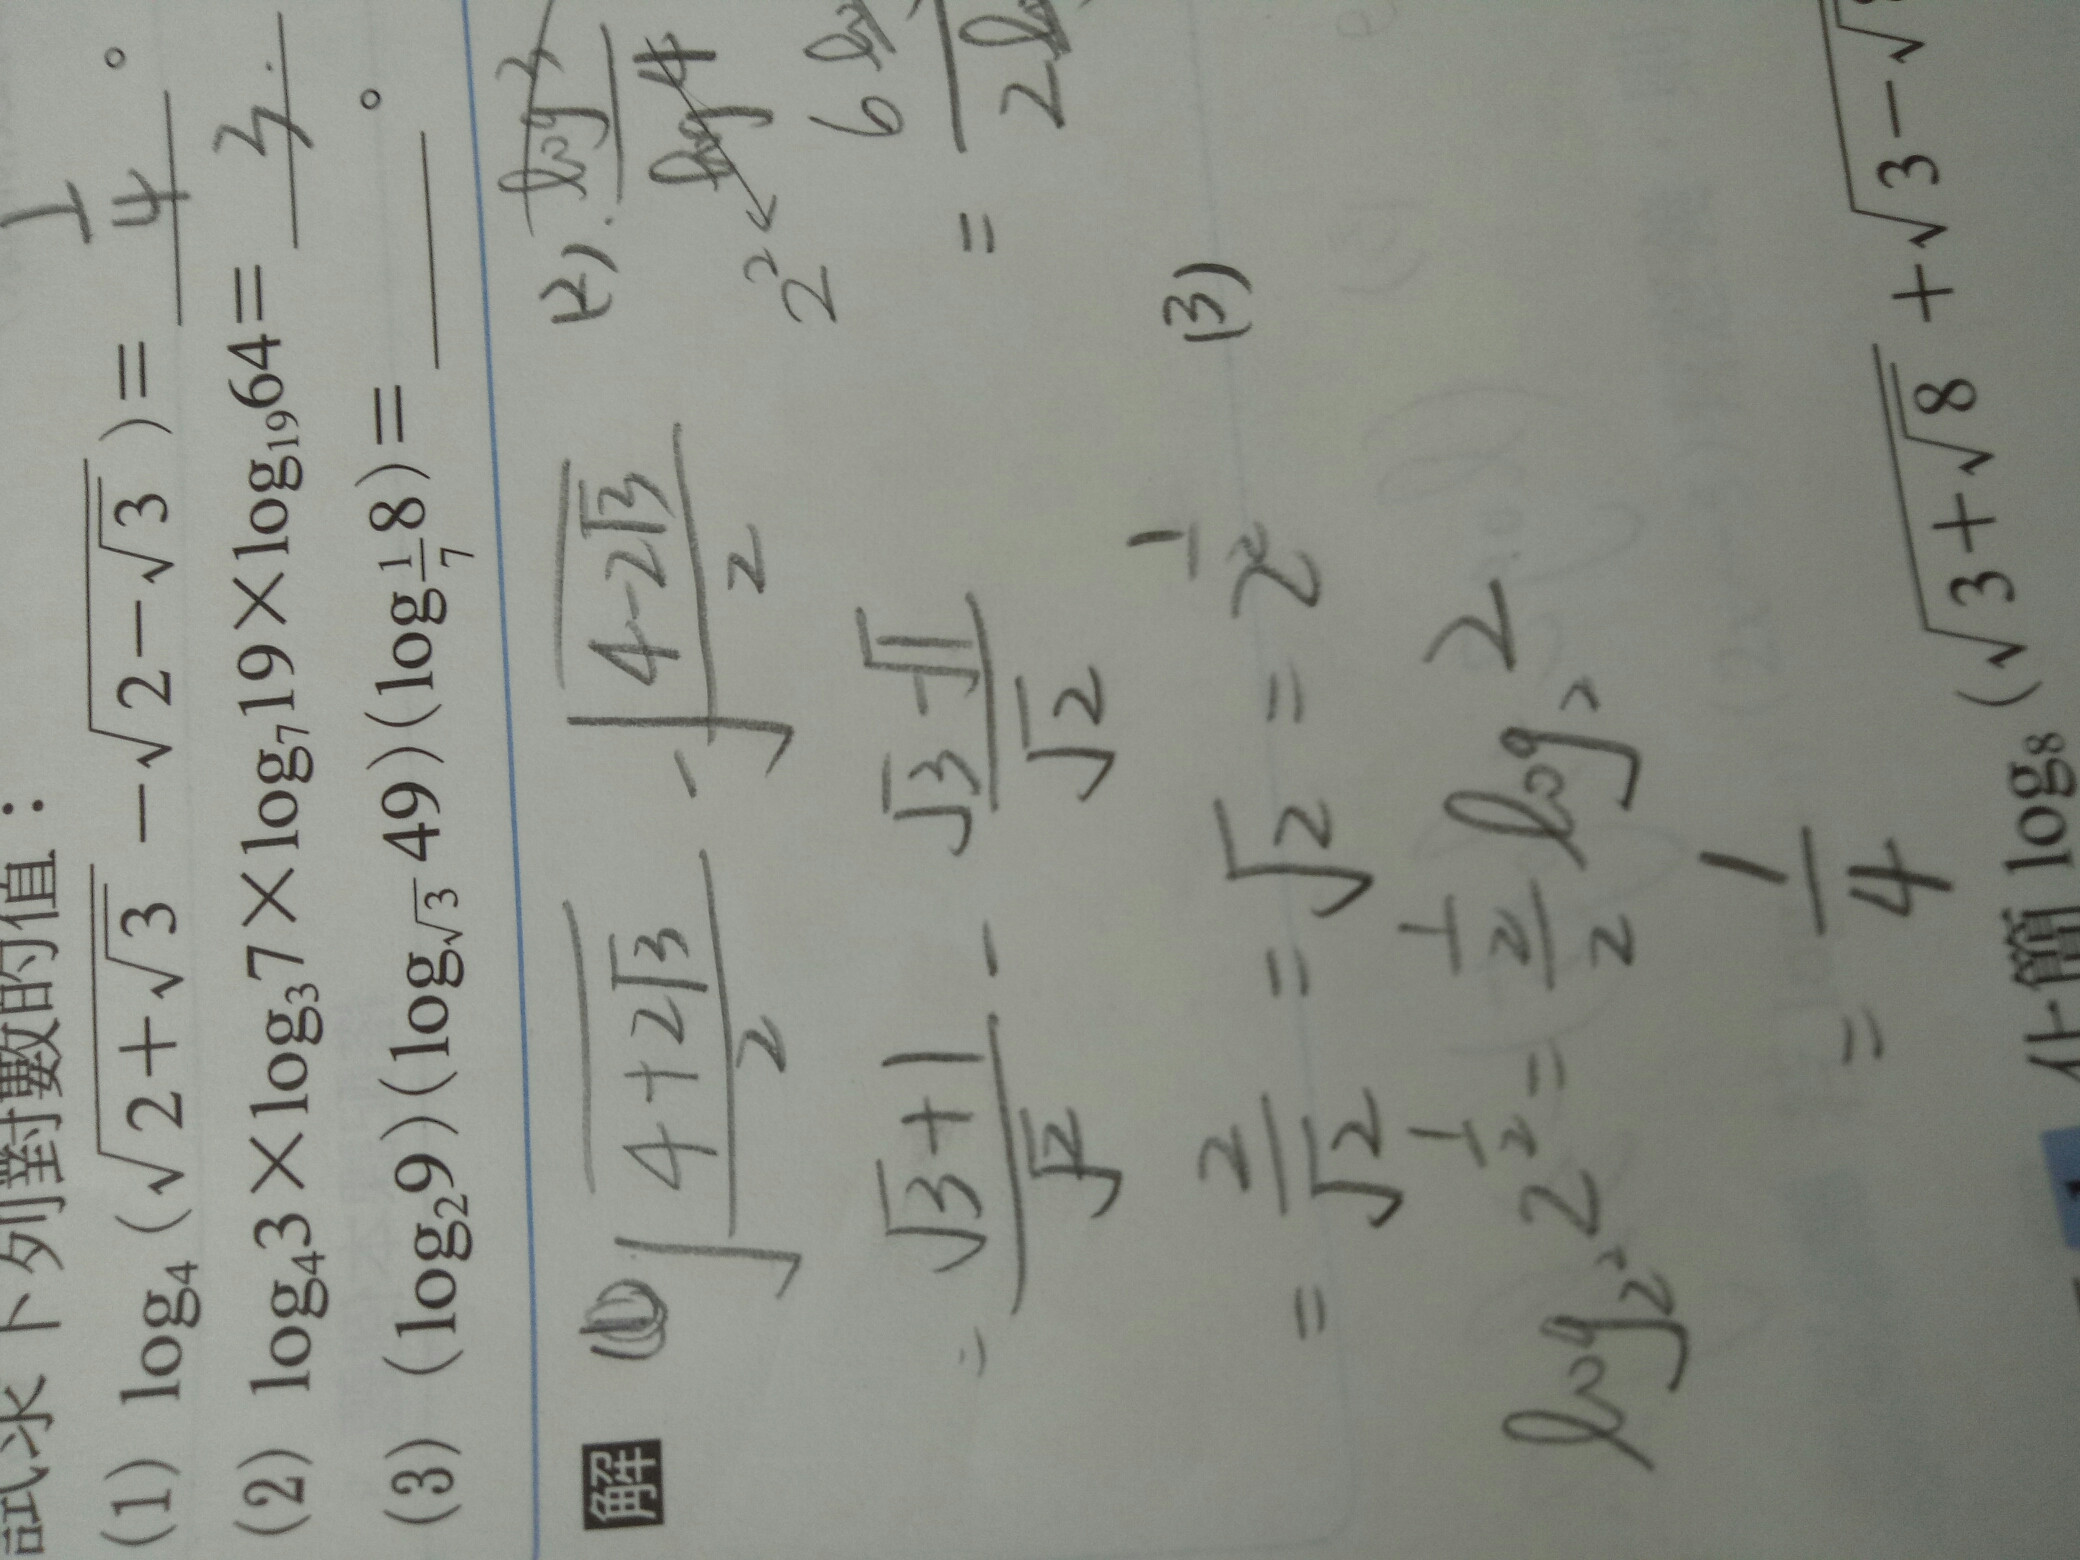 試求下列對數的值：
(1) log₄(√(2+√3) −√(2−√3))= 1/4 。
(2) log₄3×log₃7×log₇19×log₁₉64= 3 。
(3) (log₂9)(log_√3 49)(log_1/7 8)= 。
解 (1) √((4+2√3)/2) - √((4-2√3)/2)
= (√3+1)/√2 - (√3-√1)/√2
= 2/√2 = √2 = 2^1/2
log₂² 2^1/2 = (1/2)/2 log₂ 2
= 1/4
(2) log 3/log 4
2²
6 / 2
=
(3)
化簡 log₈(√(3+√8) +√(3−√